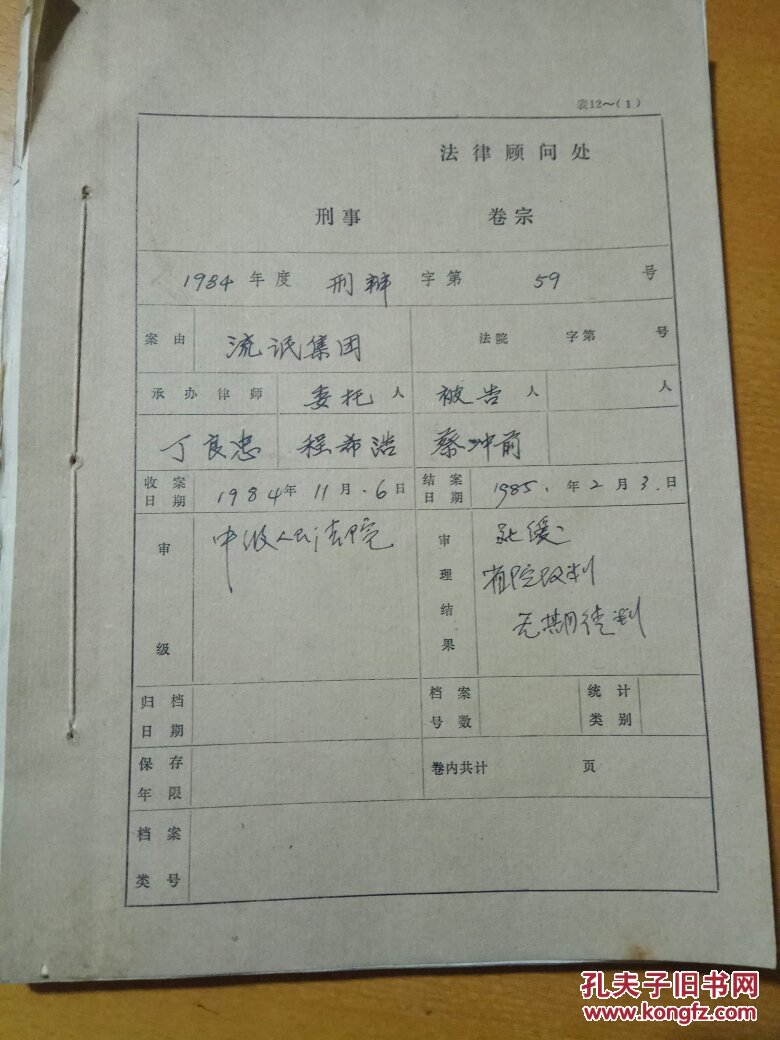 表12～(1)
法律顾问处
刑事 卷宗
1984年度 刑辩 字第 59 号
案由 流氓集团 法院 字第 号
承办律师 委托人 被告人 人
丁良忠 程希浩 蔡冲前
收案日期 1984年11月6日 结案日期 1985.年2月3.日
审级 中级人民法院 审理结果 死缓
省院改判
无期徒刑
归档日期 档案号数 统计类别
保存年限 卷内共计 页
档案类号
孔夫子旧书网
www.kongfz.com